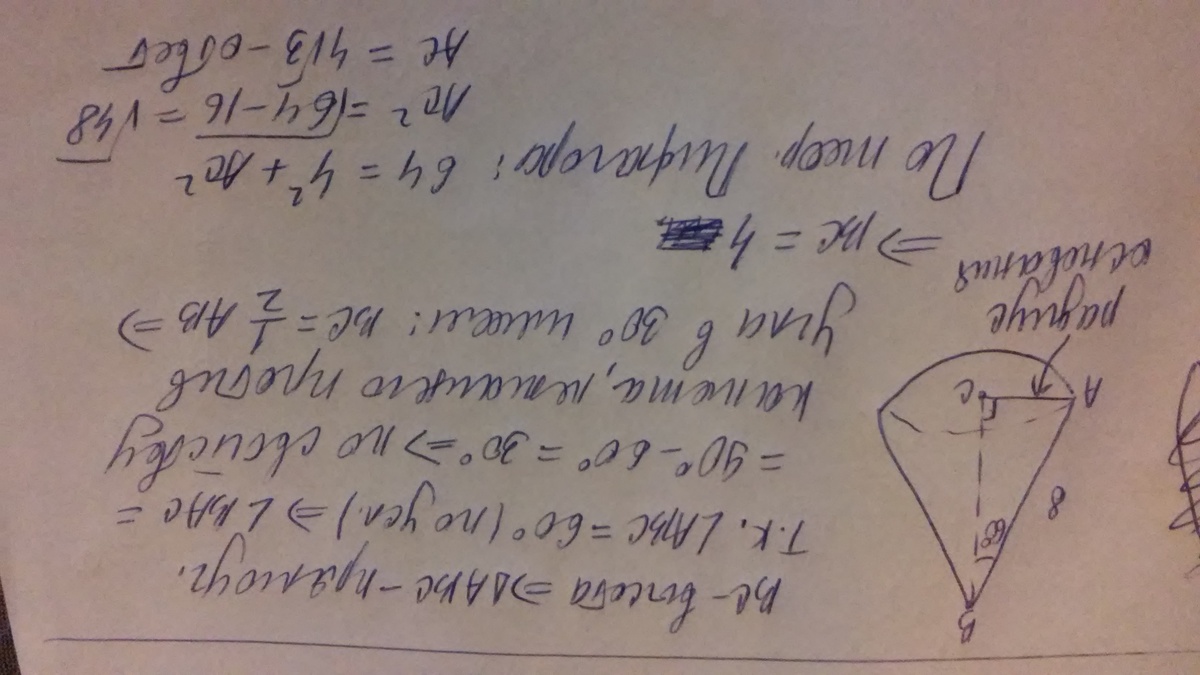 BC - высота ⇒ △ABC - прямоуг.
Т.К. ∠ABC = 60° (по усл.) ⇒ ∠BAC =
= 90° - 60° = 30° ⇒ по свойству
катета, лежащего против
угла в 30° имеем: BC = 1/2 AB ⇒
⇒ BC = 4
По теор. Пифагора: 64 = 4² + AC²
AC² = √64-16 = √48
AC = 4√3 - ответ
B
60°
8
A
C
радиус
основания